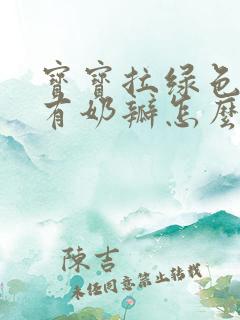 寶寶拉綠色
有奶瓣怎麼
陳吉
未经同意禁止转载